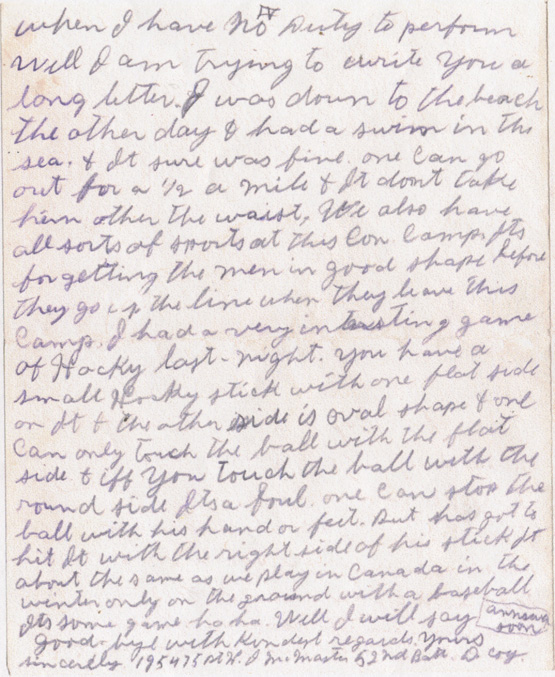 when I have No Duty to perform
Well I am trying to write you a
long letter. I was down to the beach
the other day & had a swim in the
sea. & It sure was fine. one can go
out for a ½ a mile & It dont take
hem other the waist. We also have
all sorts of sports at this Con. Camp. Its
for getting the men in good shape before
they go up the line when they leave this
Camp. I had a very intresting game
of Hocky last-night. you have a
small Hocky stick with one flat side
on It & the other side is oval shape & one
Can only touch the ball with the flat
side & iff You touch the ball with the
round side Its a foul. one can stop the
ball with his hand or feet. But has got to
hit It with the right side of his stick It
about the same as we play in Canada in the
winter only on the ground with a baseball
Its some game ha ha. Well I will say
answer
soon
Good-bye with Kindest regards. Yours
sincerely 195475 Pte W. J McMaster 52nd Batt. D coy.